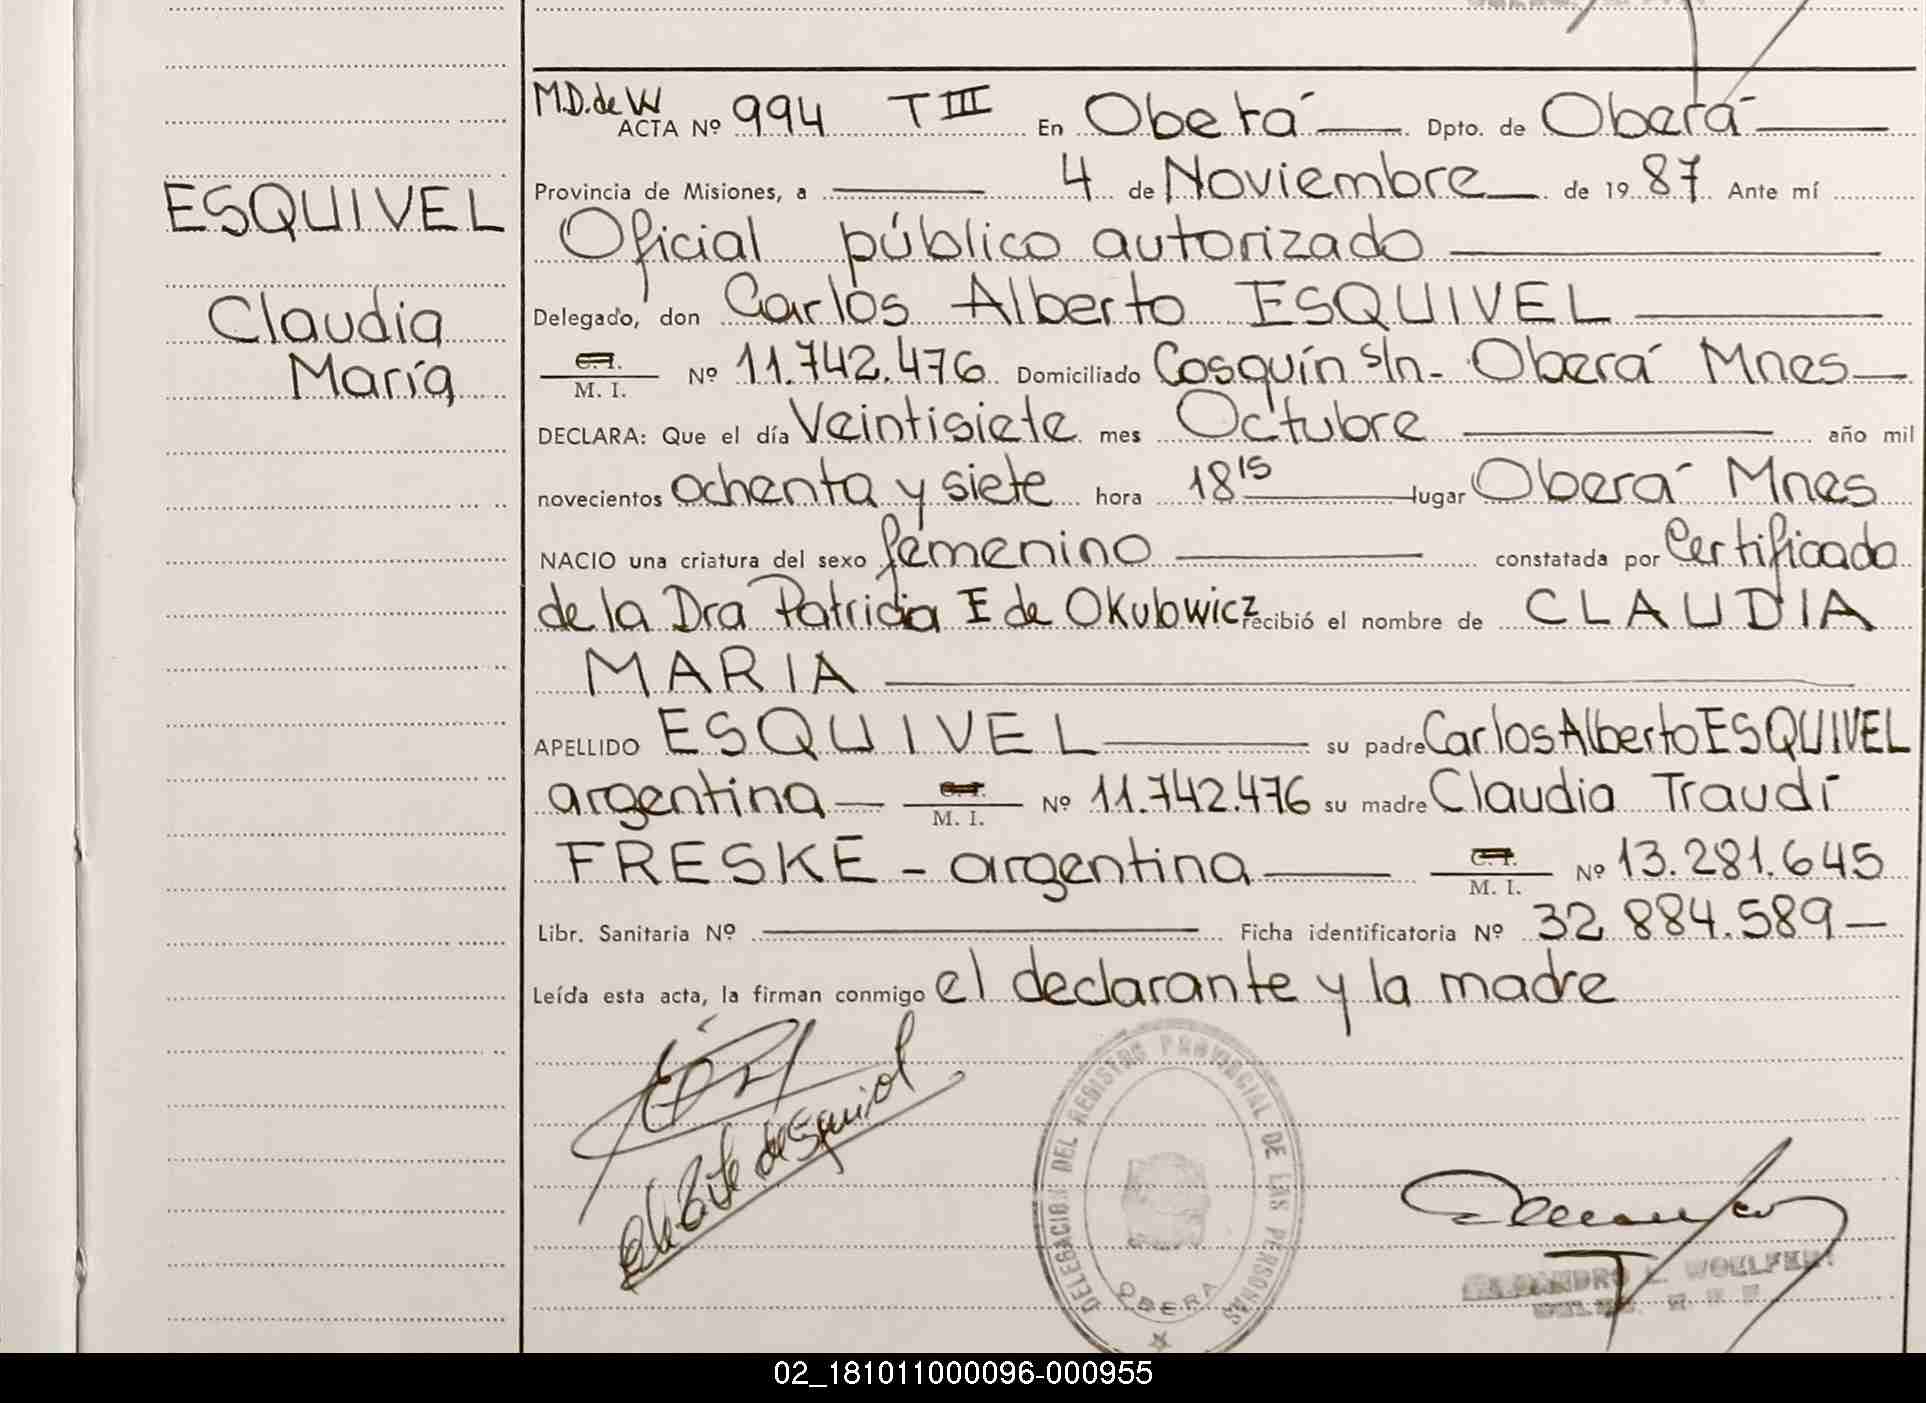 M.D. de W
ACTA Nº 994 T III En Oberá Dpto. de Oberá
Provincia de Misiones, a 4 de Noviembre de 19 87 Ante mí
ESQUIVEL
Oficial público autorizado
Claudia
María
Delegado, don Carlos Alberto ESQUIVEL
C.I.
M. I. Nº 11.742.476 Domiciliado Cosquín s/n- Oberá Mnes
DECLARA: Que el día Veintisiete mes Octubre año mil
novecientos ochenta y siete hora 18 15 lugar Oberá Mnes
NACIO una criatura del sexo femenino constatada por Certificado
de la Dra Patricia E de Okulowicz recibió el nombre de CLAUDIA
MARIA
APELLIDO ESQUIVEL su padre Carlos Alberto ESQUIVEL
argentina C.I. M. I. Nº 11.742.476 su madre Claudia Traudi
FRESKE - argentina C.I. M. I. Nº 13.281.645
Libr. Sanitaria Nº Ficha identificatoria Nº 32.884.589-
Leída esta acta, la firman conmigo el declarante y la madre
de Esquivel
DELEGACION DEL REGISTRO PROVINCIAL DE LAS PERSONAS
OBERA
WOELFERT
02_181011000096-000955